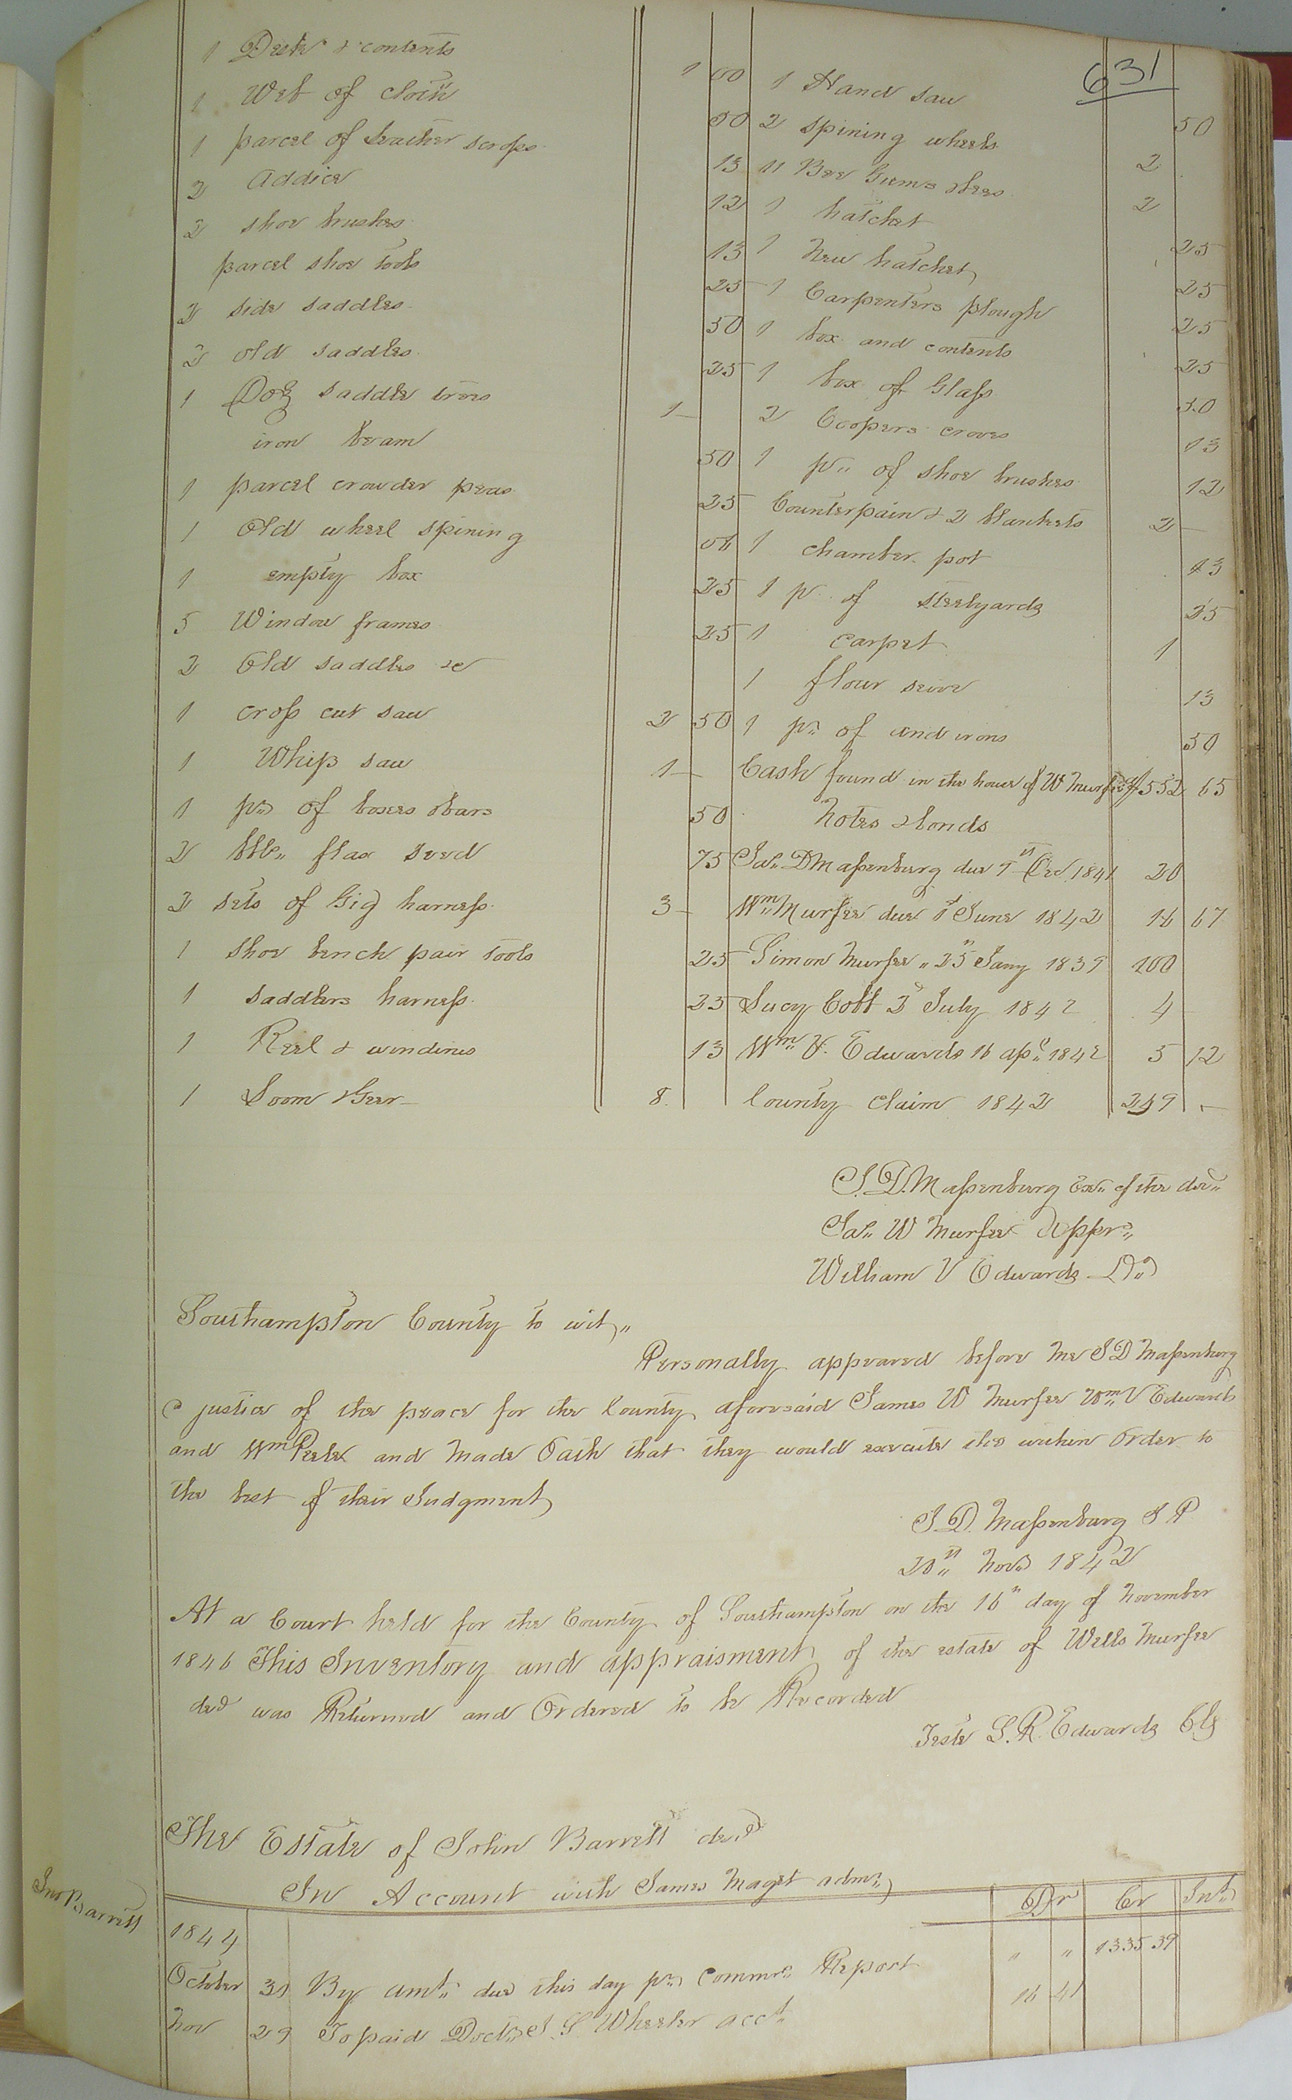 631
1 Desk & contents 1 00
1 Web of cloth 50
1 parcel of leather scraps 13
2 Addice 12
2 shoe brushes 13
parcel shoe tools 25
2 side saddles 50
2 old saddles 25
1 Doz saddle trees 1 -
iron beam 50
1 parcel crowder peas 25
1 Old wheel spining 06
1 empty box 25
5 Window frames 25
2 Old saddles &c
1 cross cut saw 2 50
1 Whip saw 1 -
1 pr of boxes & bars 50
2 bbls flax seed 75
2 sets of Gig harness 3 -
1 shoe bench pair tools 25
1 saddlers harness 25
1 Reel & windines 13
1 Loom & Geer 8
1 Hand saw 50
2 spining wheels 2
11 Bee Gums & bees 2
1 hatchet 25
1 new hatchet 25
1 Carpenters plough 25
1 box and contents 25
1 box of Glass 50
2 Coopers croves 13
1 pr of shoe brushes 12
Counterpain & 2 blankets 2 -
1 chamber pot 13
1 pr of steelyards 25
1 carpet 1
1 flour seive 13
1 pr of and irons 50
Cash found in the house of W Murfee 552 65
Notes & bonds
Jas. D Massenburg due Dec 1841 20
Wm Murfee due 1st June 1842 16 67
Simon Murfee " 25th Jany 1839 100
Lucy Cobb 2d July 1842 4 -
Wm V. Edwards 16 apl 1842 5 12
County claim 1842 249 -
J. D. Massenburg Exr of the decd
Jas W Murfee Apprs
William V Edwards Do
Southampton County to wit,
Personally appeared before me J D Massenburg
a justice of the peace for the County aforesaid James W Murfee Wm V Edwards
and Wm Peele and made Oath that they would execute the within Order to
the best of their Judgment
J. D. Massenburg J P
20th Novr 1842
At a Court held for the County of Southampton on the 16th day of November
1846 This Inventory and appraisment of the estate of Wills Murfee
decd was Returned and Ordered to be Recorded
Teste L. R. Edwards Clk
The Estate of John Barrett decd
Jno Barrett
In Account with James Maget admr
Dr Cr Int.
1844
October 31 By amt due this day pr commrs Report " " 1335 39
Nov 29 To paid Doctr J. S Wheeler acct 16 41